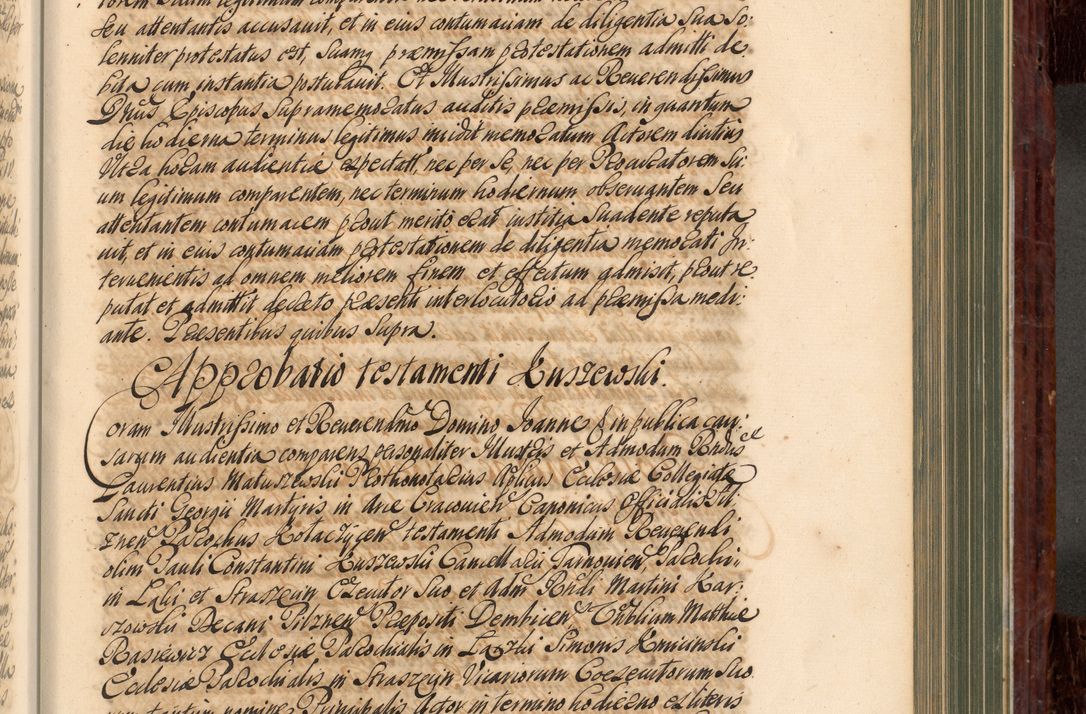 seu attentantis accusavit, et in eius contumaciam de diligentia sua so
lenniter protestatus est, suamq præmissam protestationem admitti de
bita cum instantia postulavit. Et Illustrissimus ac Reverendissimus
Dnus Episcopus supramemoratus auditis præmissis, in quantum
die hodierna terminus legitimus incidit memoratum Actorem diutius
Ultra horam audientiæ expectatt, nec per se, nec per Procuratorem su
um legitimum comparentem, nec terminum hodiernum observantem seu
attentantem contumacem prout merito erat iustitia suadente reputa
vit, et in eius contumaciam protestationem de diligentia memorati In
tervenientis ad omnem meliorem finem et effectum admisit, prout re
putat et admittit decreto præsenti interlocutorio ad præmissa medi
ante. Præsentibus quibus supra.
Approbatio testamenti Kuszewski.
Coram Illustrissimo et Reverendmo Domino Joanne in publica cau
sarum audientia comparens personaliter Illustris et Admodum Rndus
Laurentius Matuszewski Prothonotarius Aplicus Ecclesiæ Collegiatæ
Sancti Georgii Martyris in Arce Cracovien Canonicus Officialis Pil
znen Parochus Kotaczycen testamenti Admodum Reverendi
olim Pauli Constantini Kuszewski Cancellarii Tarnovien Parochi
in Lubi et Straszecin Executor suo et Adm Rndi Martini Kar
szowski Decani Pilznen Præpositi Dembicen Thobliam Matthiæ
Rasiewicz Ecclesiæ Parochialis in Simonis Kmicinskii
Ecclesiæ Parochialis in Straszecin Vicariorum Coexecutorum suo
nomine Principalis Actor in termino hodierno ex literis